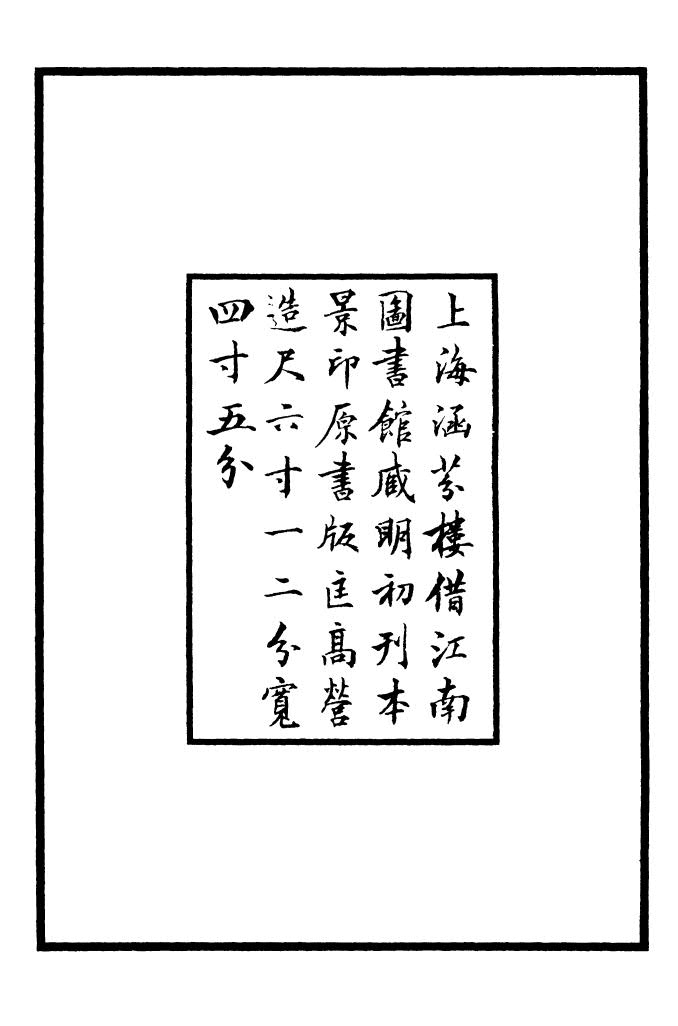 上海涵芬樓借江南
圖書館藏明初刊本
景印原書版匡高營
造尺六寸一二分寬
四寸五分